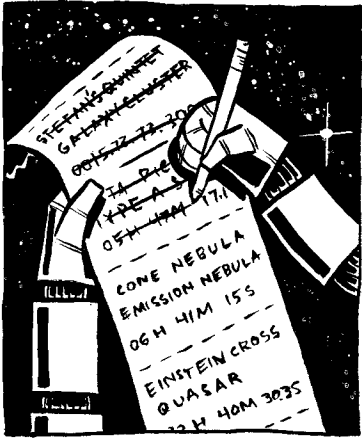 STEFAN'S QUINTET
GALAXY CLUSTER
TYPE A
05H 47M 17.1
CONE NEBULA
EMISSION NEBULA
06H 41M 15S
EINSTEIN CROSS
QUASAR
H 40M 30.35